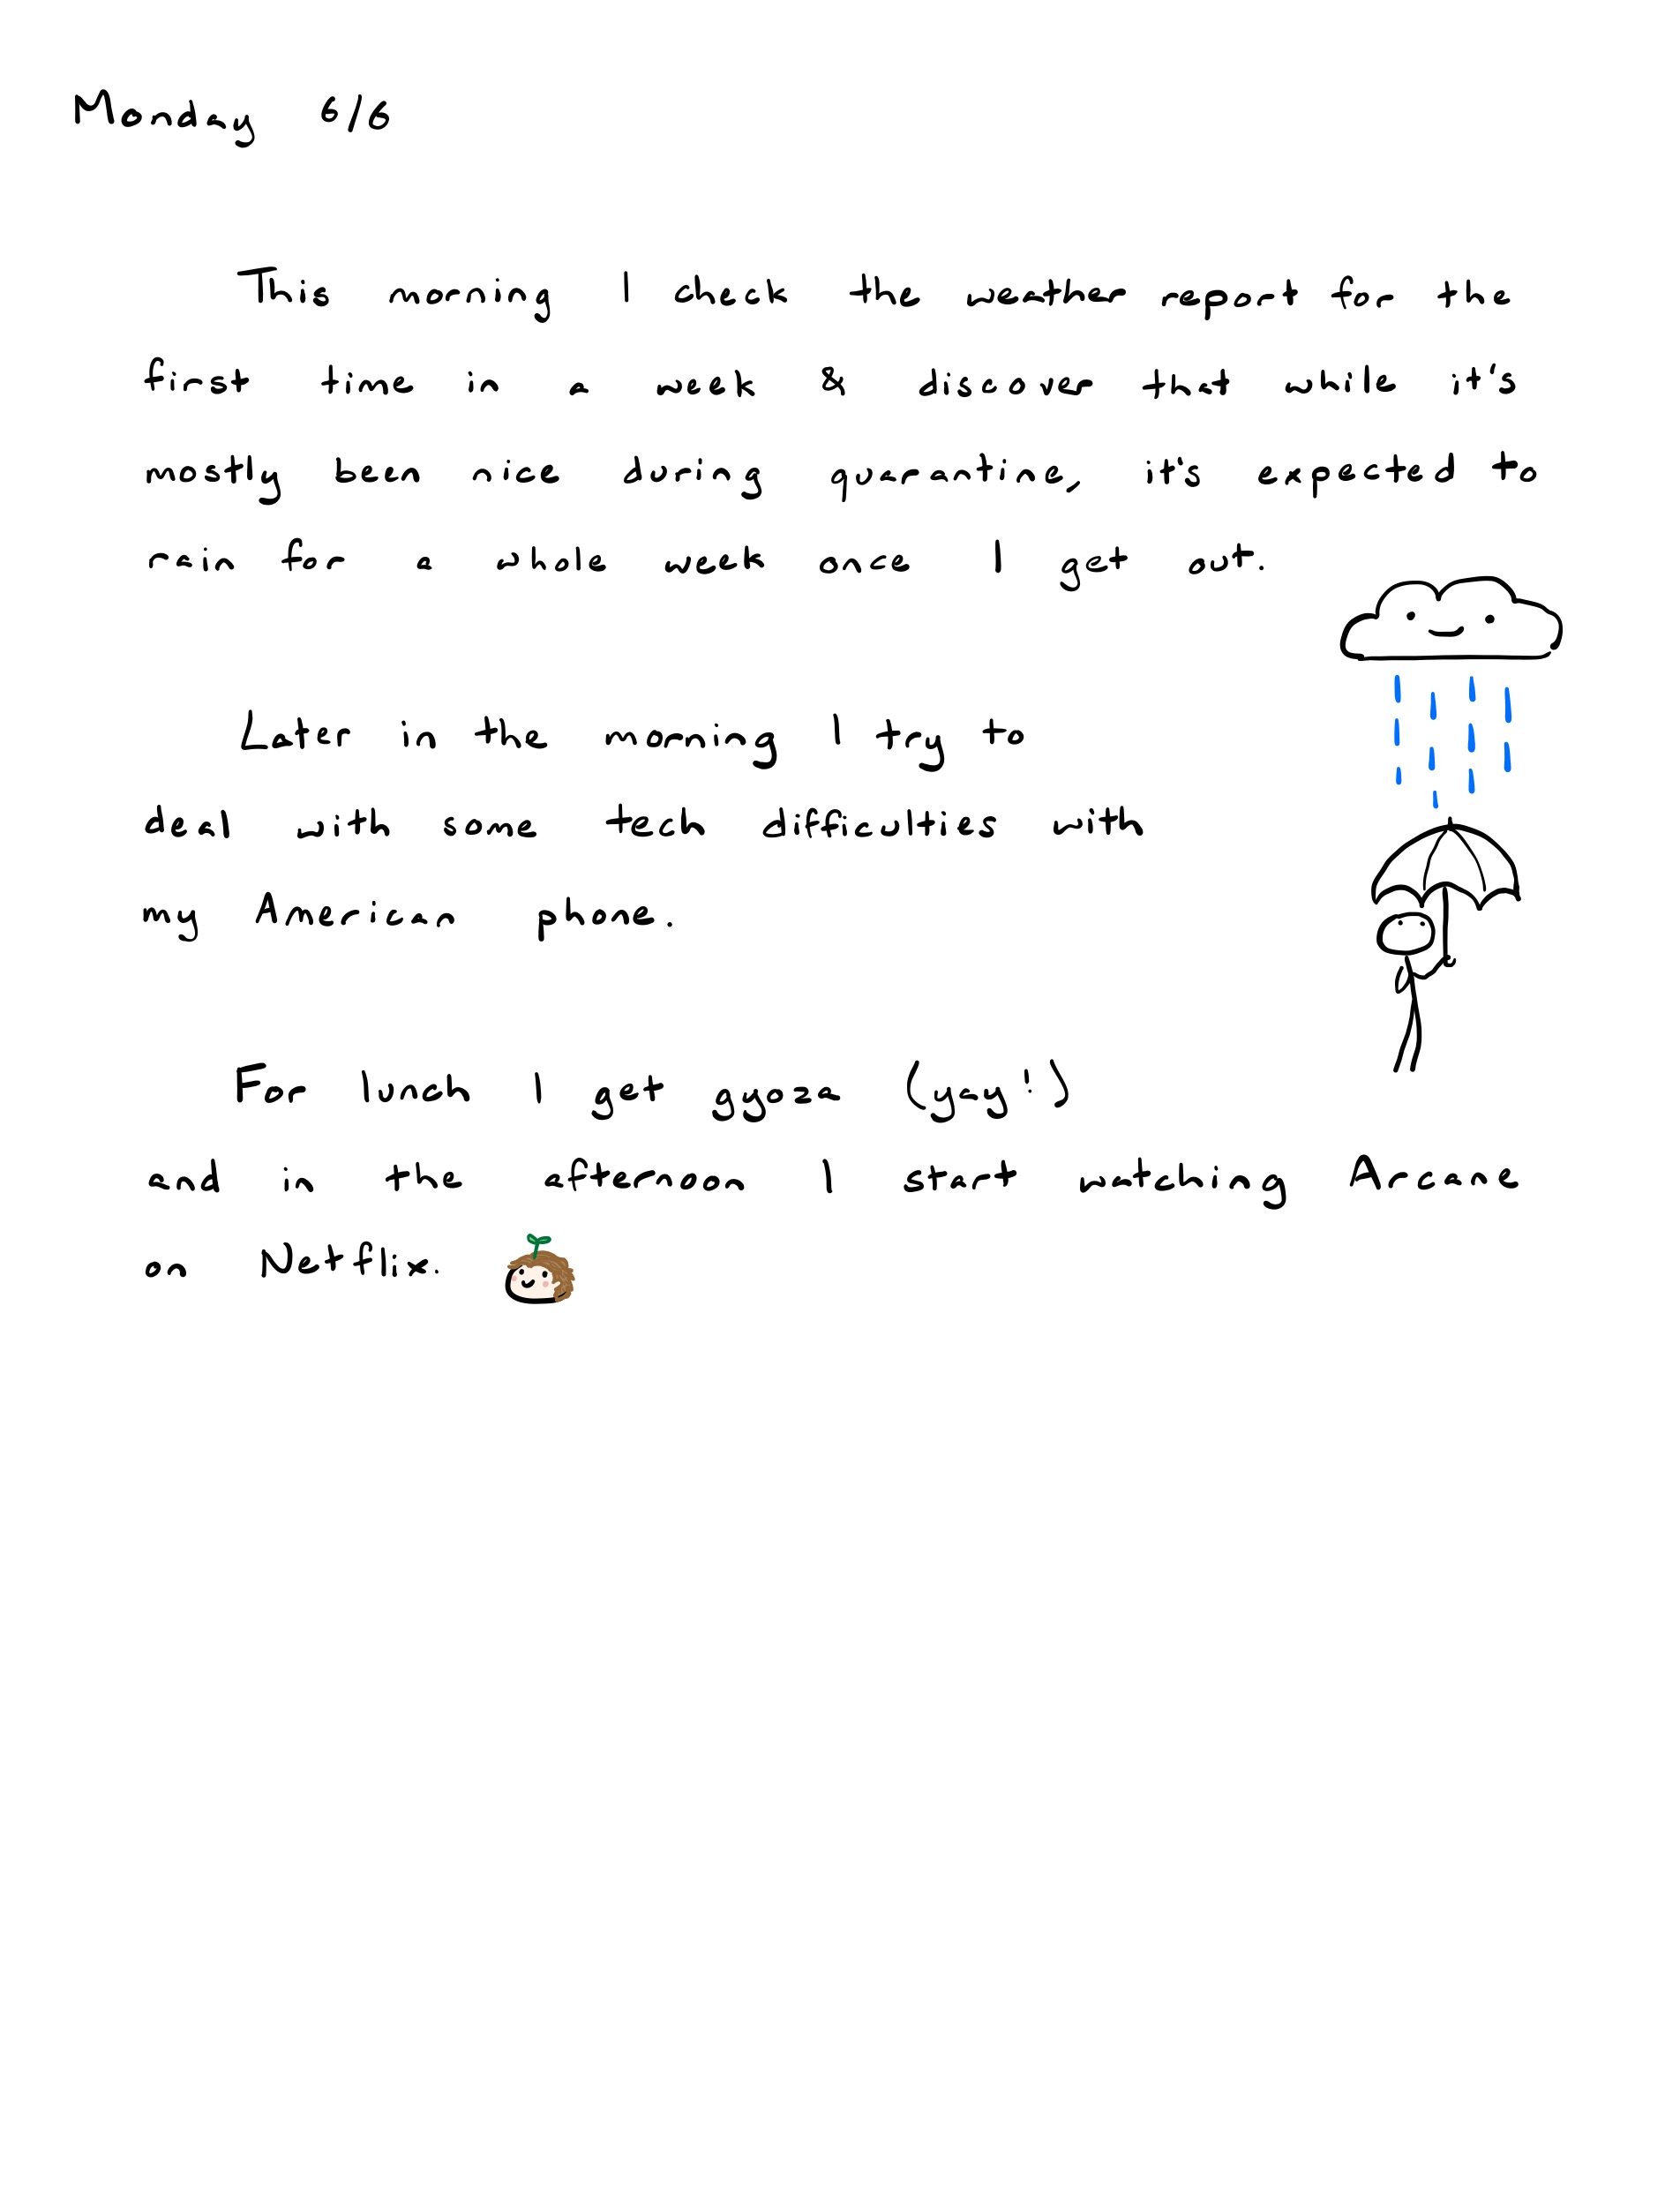 Monday 6/6
This morning I check the weather report for the
first time in a week & discover that while it's
mostly been nice during quarantine, it's expected to
rain for a whole week once I get out.
Later in the morning I try to
deal with some tech difficulties with
my American phone.
For lunch I get gyoza (yay!)
and in the afternoon I start watching Arcane
on Netflix.